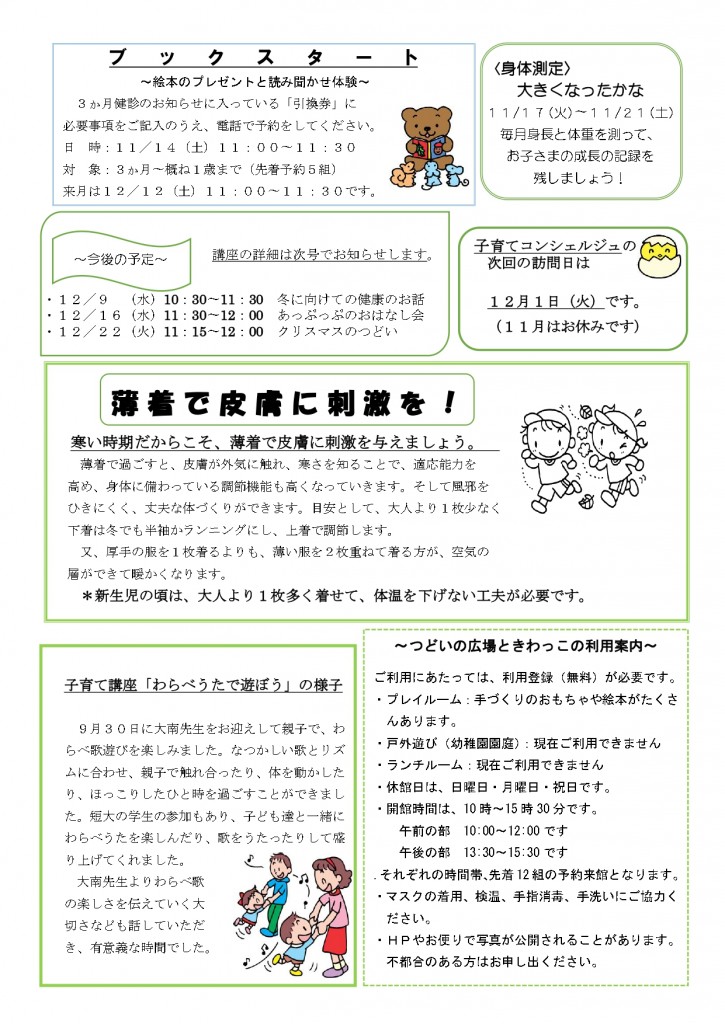 ブックスタート
～絵本のプレゼントと読み聞かせ体験～
３か月健診のお知らせに入っている「引換券」に
必要事項をご記入のうえ、電話で予約をしてください。
日　時：１１／１４（土）１１：００～１１：３０
対　象：３か月～概ね１歳まで（先着予約５組）
来月は１２／１２（土）１１：００～１１：３０です。
〈身体測定〉
大きくなったかな
１１/１７(火)～１１/２１(土)
毎月身長と体重を測って、
お子さまの成長の記録を
残しましょう！
～今後の予定～
講座の詳細は次号でお知らせします。
・１２／９　（水）10：30～11：30　冬に向けての健康のお話
・１２／16（水）11：30～12：00　あっぷっぷのおはなし会
・１２／22（火）11：15～12：00　クリスマスのつどい
子育てコンシェルジュの
次回の訪問日は
１２月１日（火）です。
（１１月はお休みです）
薄着で皮膚に刺激を！
寒い時期だからこそ、薄着で皮膚に刺激を与えましょう。
薄着で過ごすと、皮膚が外気に触れ、寒さを知ることで、適応能力を
高め、身体に備わっている調節機能も高くなっていきます。そして風邪を
ひきにくく、丈夫な体づくりができます。目安として、大人より１枚少なく
下着は冬でも半袖かランニングにし、上着で調節します。
又、厚手の服を１枚着るよりも、薄い服を２枚重ねて着る方が、空気の
層ができて暖かくなります。
＊新生児の頃は、大人より１枚多く着せて、体温を下げない工夫が必要です。
子育て講座「わらべうたで遊ぼう」の様子
９月３０日に大南先生をお迎えして親子で、わ
らべ歌遊びを楽しみました。なつかしい歌とリズ
ムに合わせ、親子で触れ合ったり、体を動かした
り、ほっこりしたひと時を過ごすことができまし
た。短大の学生の参加もあり、子ども達と一緒に
わらべうたを楽しんだり、歌をうたったりして盛
り上げてくれました。
大南先生よりわらべ歌
の楽しさを伝えていく大
切さなども話していただ
き、有意義な時間でした。
～つどいの広場ときわっこの利用案内～
ご利用にあたっては、利用登録（無料）が必要です。
・プレイルーム：手づくりのおもちゃや絵本がたくさ
んあります。
・戸外遊び（幼稚園園庭）：現在ご利用できません
・ランチルーム：現在ご利用できません
・休館日は、日曜日・月曜日・祝日です。
・開館時間は、10時～15時30分です。
午前の部　10:00～12:00です
午後の部　13:30～15:30です
．それぞれの時間帯､先着12組の予約来館となります。
・マスクの着用、検温、手指消毒、手洗いにご協力く
ださい。
・ＨＰやお便りで写真が公開されることがあります。
不都合のある方はお申し出ください。